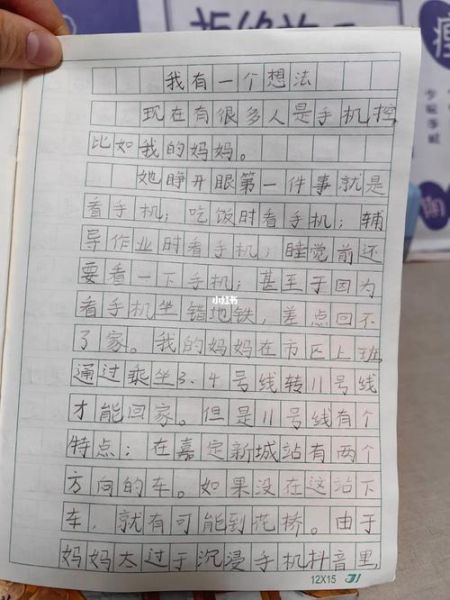 我有一个想法
现在有很多人是手机控,
比如我的妈妈。
她睁开眼第一件事就是
看手机；吃饭时看手机；辅
导作业时看手机；睡觉前还
要看一下手机；甚至于因为
看手机坐错地铁，差点回不
了家。我的妈妈在市区上班
通过乘坐3、4号线转11号线
才能回家。但是11号线有个
特点：在嘉定新城站有两个
方向的车。如果没在这站下
车，就有可能到花桥。由于
妈妈太过于沉浸手机抖音里,
12X15
小红书